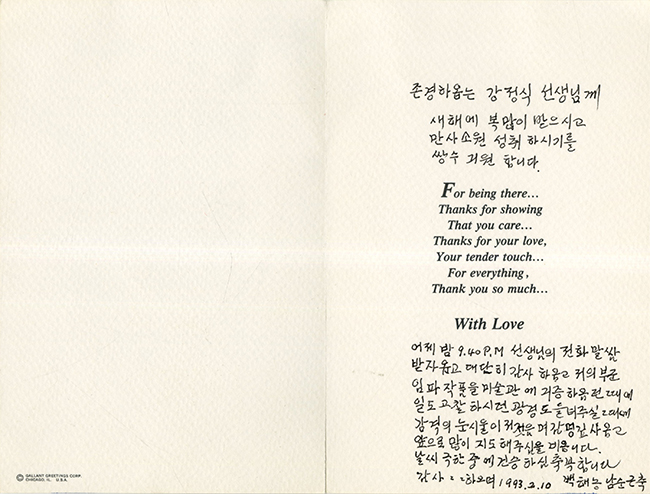 존경하옵는 강정식 선생님께
새해에 복많이 받으시고
만사소원 성취 하시기를
쌍수 기원 합니다.
For being there...
Thanks for showing
That you care...
Thanks for your love,
Your tender touch...
For everything,
Thank you so much...
With Love
어제 밤 9.40 P.M 선생님의 전화 말씀
받자옵고 대단히 감사 하옵고 저의 부군
임파 작품을 미술관에 기증하옵던 때에
일도 고찰 하시던 광경도
감격의 눈시울이
앞으로 많이 지도해주심을
날씨 극한 중에 건승 하심 축복합니다
감사 하오며 1993.2.10 백해능 남순근축
© GALLANT GREETINGS CORP.
CHICAGO, IL U.S.A.